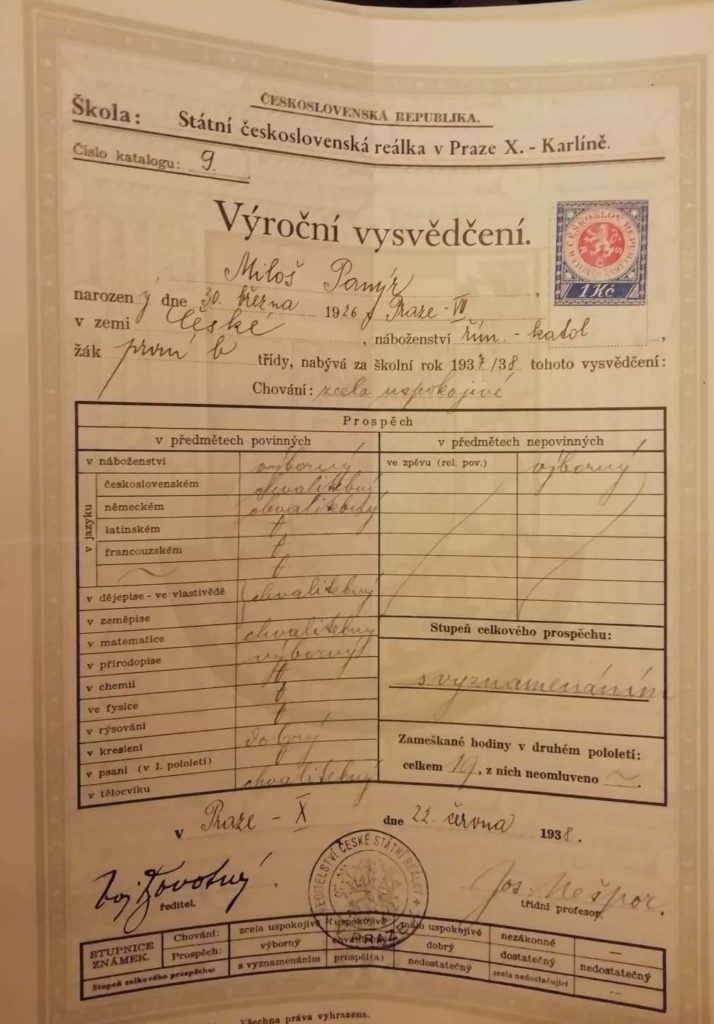 ČESKOSLOVENSKÁ REPUBLIKA.
Škola: Státní československá reálka v Praze X. - Karlíně.
Číslo katalogu: 9.
Výroční vysvědčení.
1 Kč
Miloš
narozený dne 30. března 1926 v Praze - VII
v zemi České, náboženství řím. - katol
žák první b třídy, nabývá za školní rok 1937/38 tohoto vysvědčení:
Chování: zcela uspokojivé
Prospěch
v předmětech povinných v předmětech nepovinných
v náboženství výborný ve zpěvu (rel. pov.) výborný
v jazyku
československém chvalitebný
německém chvalitebný
latinském
francouzském
v dějepise - ve vlastivědě chvalitebný
v zeměpise
v matematice chvalitebný
v přírodopise výborný
v chemii
ve fysice
v rýsování
v kreslení dobrý
v psaní (v I. pololetí)
v tělocviku chvalitebný
Stupeň celkového prospěchu:
s vyznamenáním
Zameškané hodiny v druhém pololetí:
celkem, z nich neomluveno
v Praze - X dne 22. června 1938.
Novotný
ředitel.
Jos. Nešpor.
třídní profesor.
ŘEDITELSTVÍ ČESKÉ STÁTNÍ REÁLKY
PRAZE
STUPNICE ZNÁMEK.
Chování: zcela uspokojivé uspokojivé málo uspokojivé nezákonné —
Prospěch: výborný chvalitebný dobrý dostatečný nedostatečný
Stupeň celkového prospěchu: s vyznamenáním prospěl(a) nedostatečný zcela nedostačující —
Všechna práva vyhrazena.